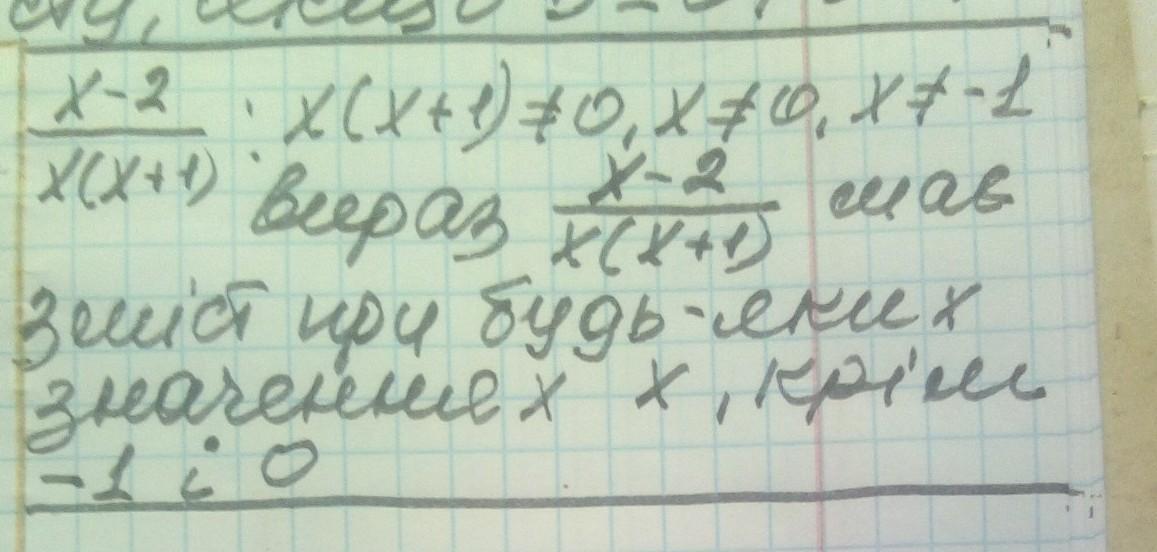 x-2/x(x+1) : x(x+1)≠0, x≠0, x≠-1
вираз x-2/x(x+1) має
зміст при будь-яких
значеннях x, крім
-1 і 0